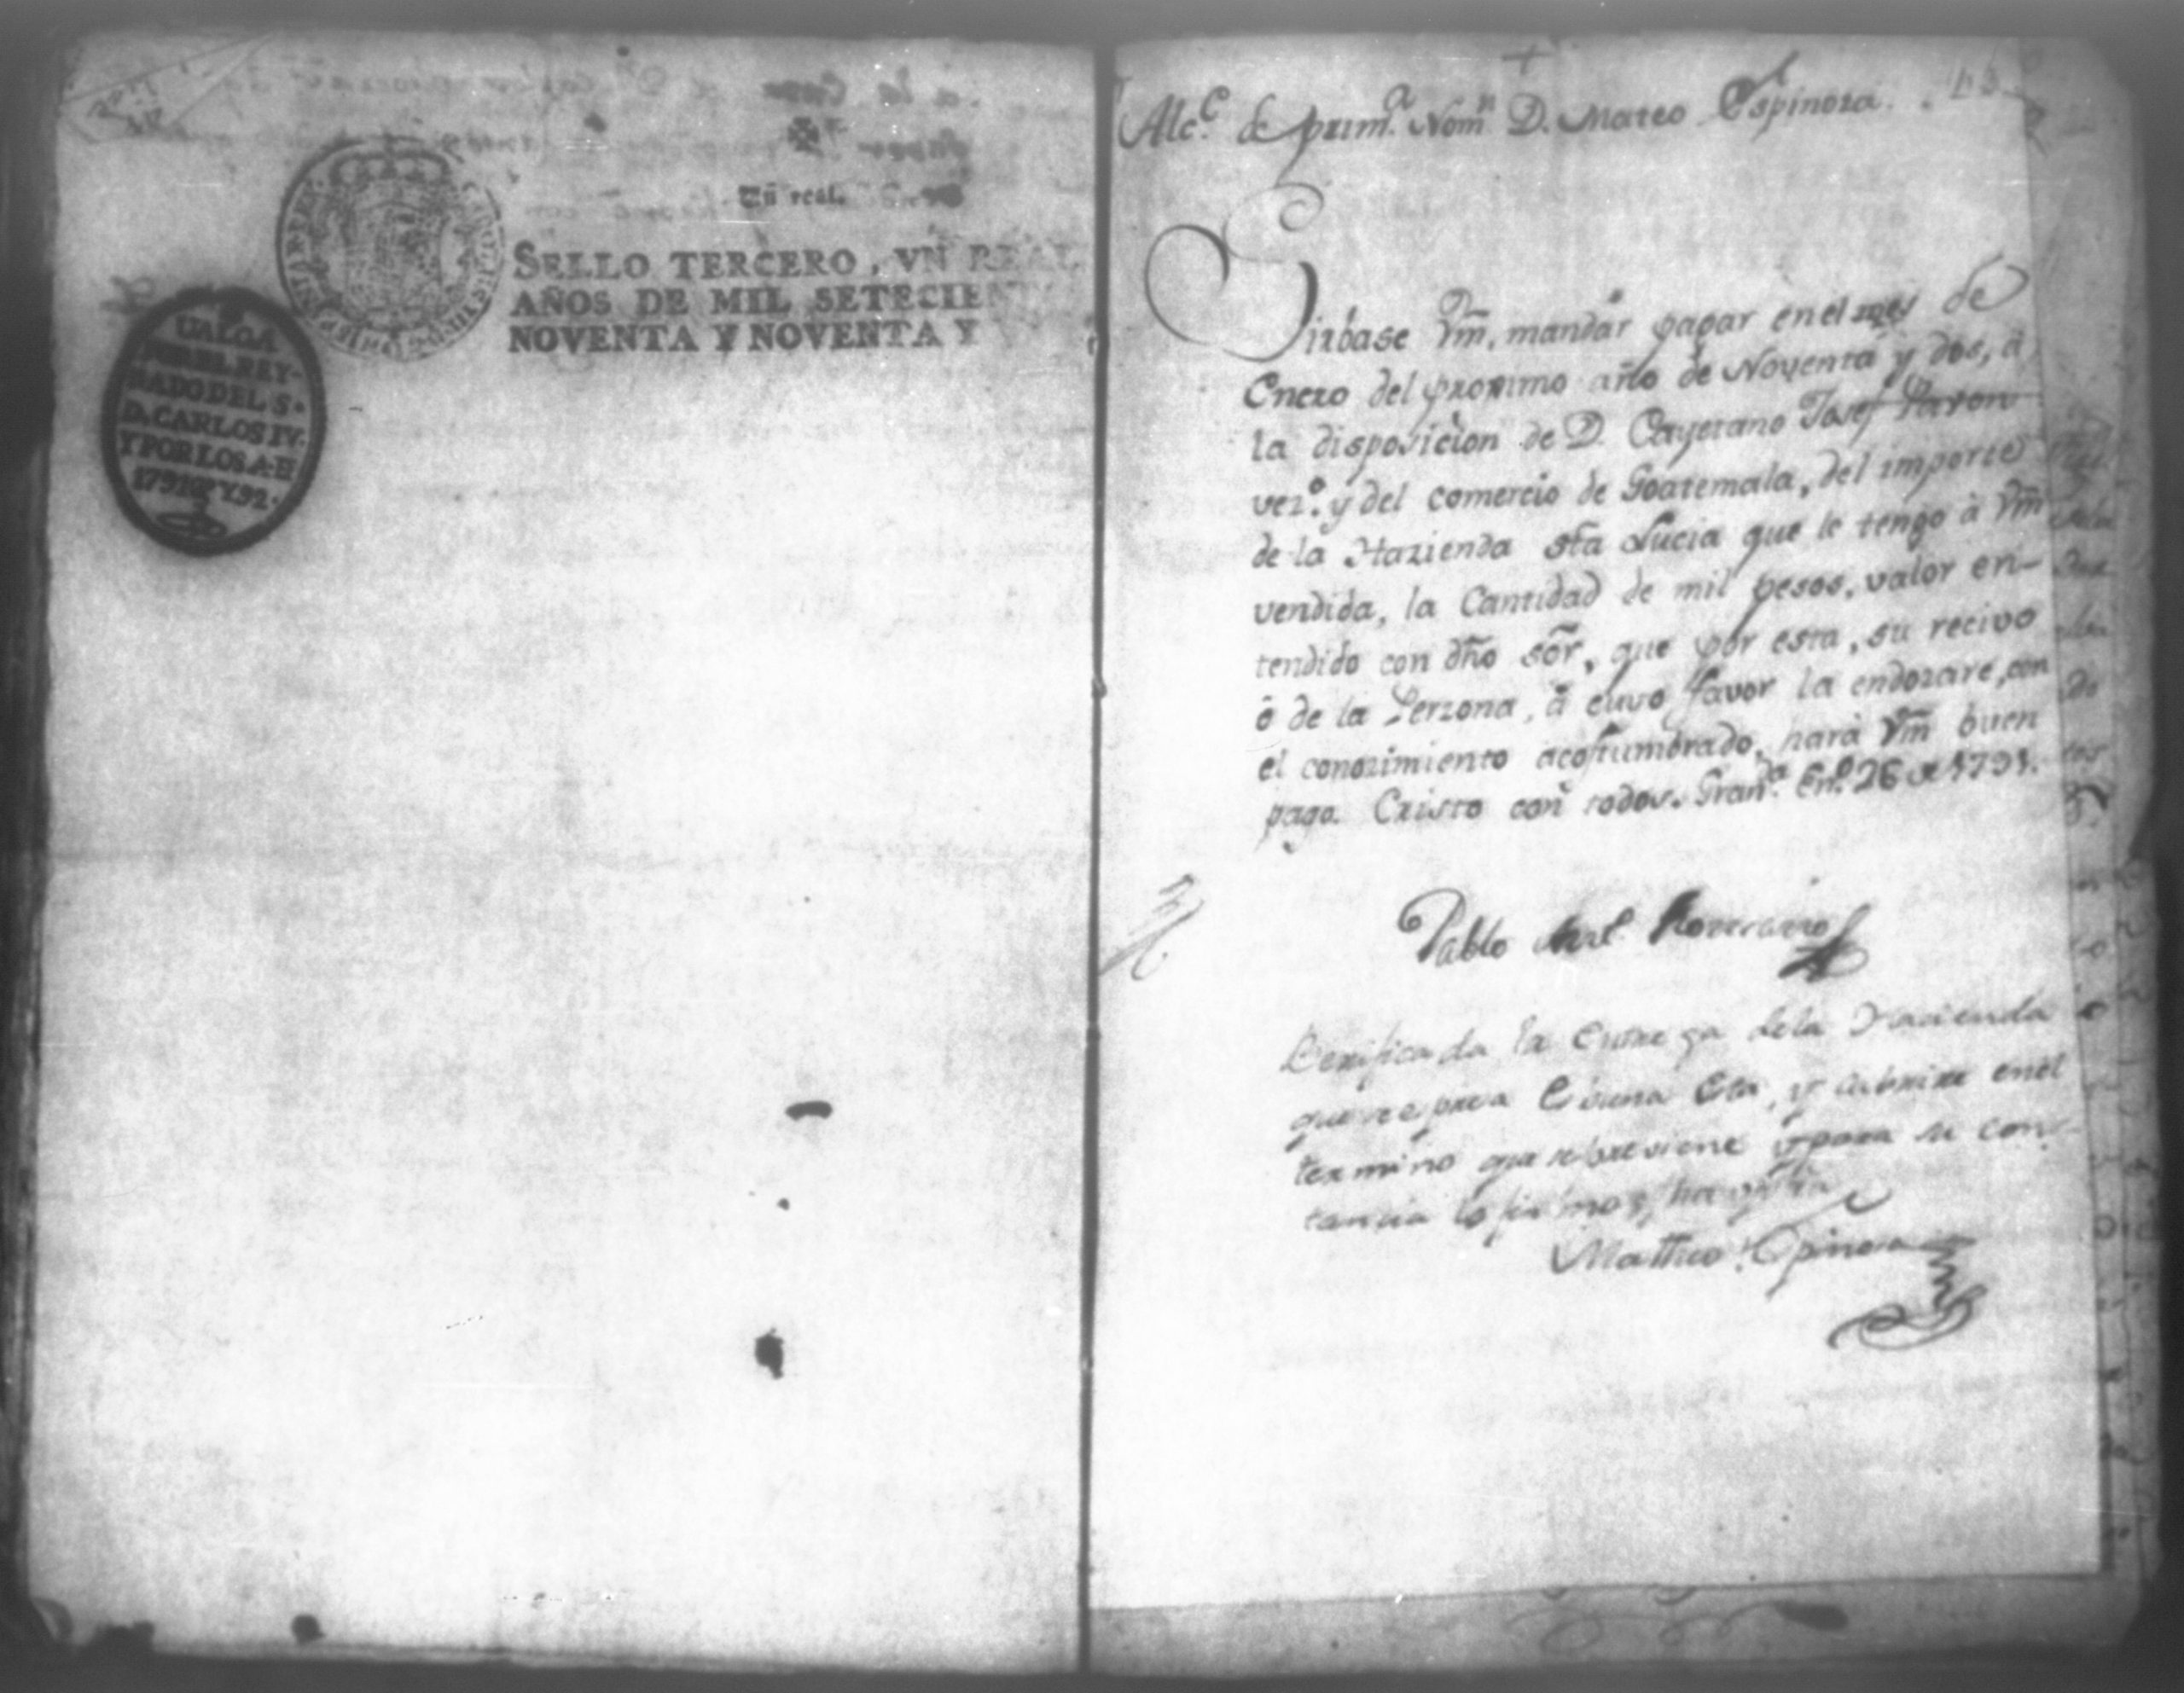 Un real.
SELLO TERCERO, VN REAL
AÑOS DE MIL SETECIEN
NOVENTA Y NOVENTA Y
VALGA
POR EL REY-
NADO DEL S.
D. CARLOS IV.
Y POR LOS A. D
1791 Y 92.
Alc.e de prim.a Nom.n D. Mateo Espinoza.
Sirbase Vm, mandar pagar en el mes de
Enero del proximo año de Noventa y dos, á
la disposicion de D. Cayetano Josef Pavon
vez.o y del comercio de Goatemala, del importe
de la Hazienda sta Lucia que le tengo à Vm
vendida, la Cantidad de mil pesos, valor en-
tendido con dho sõr, que por esta, su recivo
ó de la Perzona, á cuyo favor la endozare, con
el conozimiento acostumbrado, hará Vm buen
pago. Cristo con todos. Gran.da En.o 26 de 1791.
Pablo
Berificada la Entrega dela Hacienda
que
termino que se previene y para su con-
tancia lo firmo
Matheo Espinosa